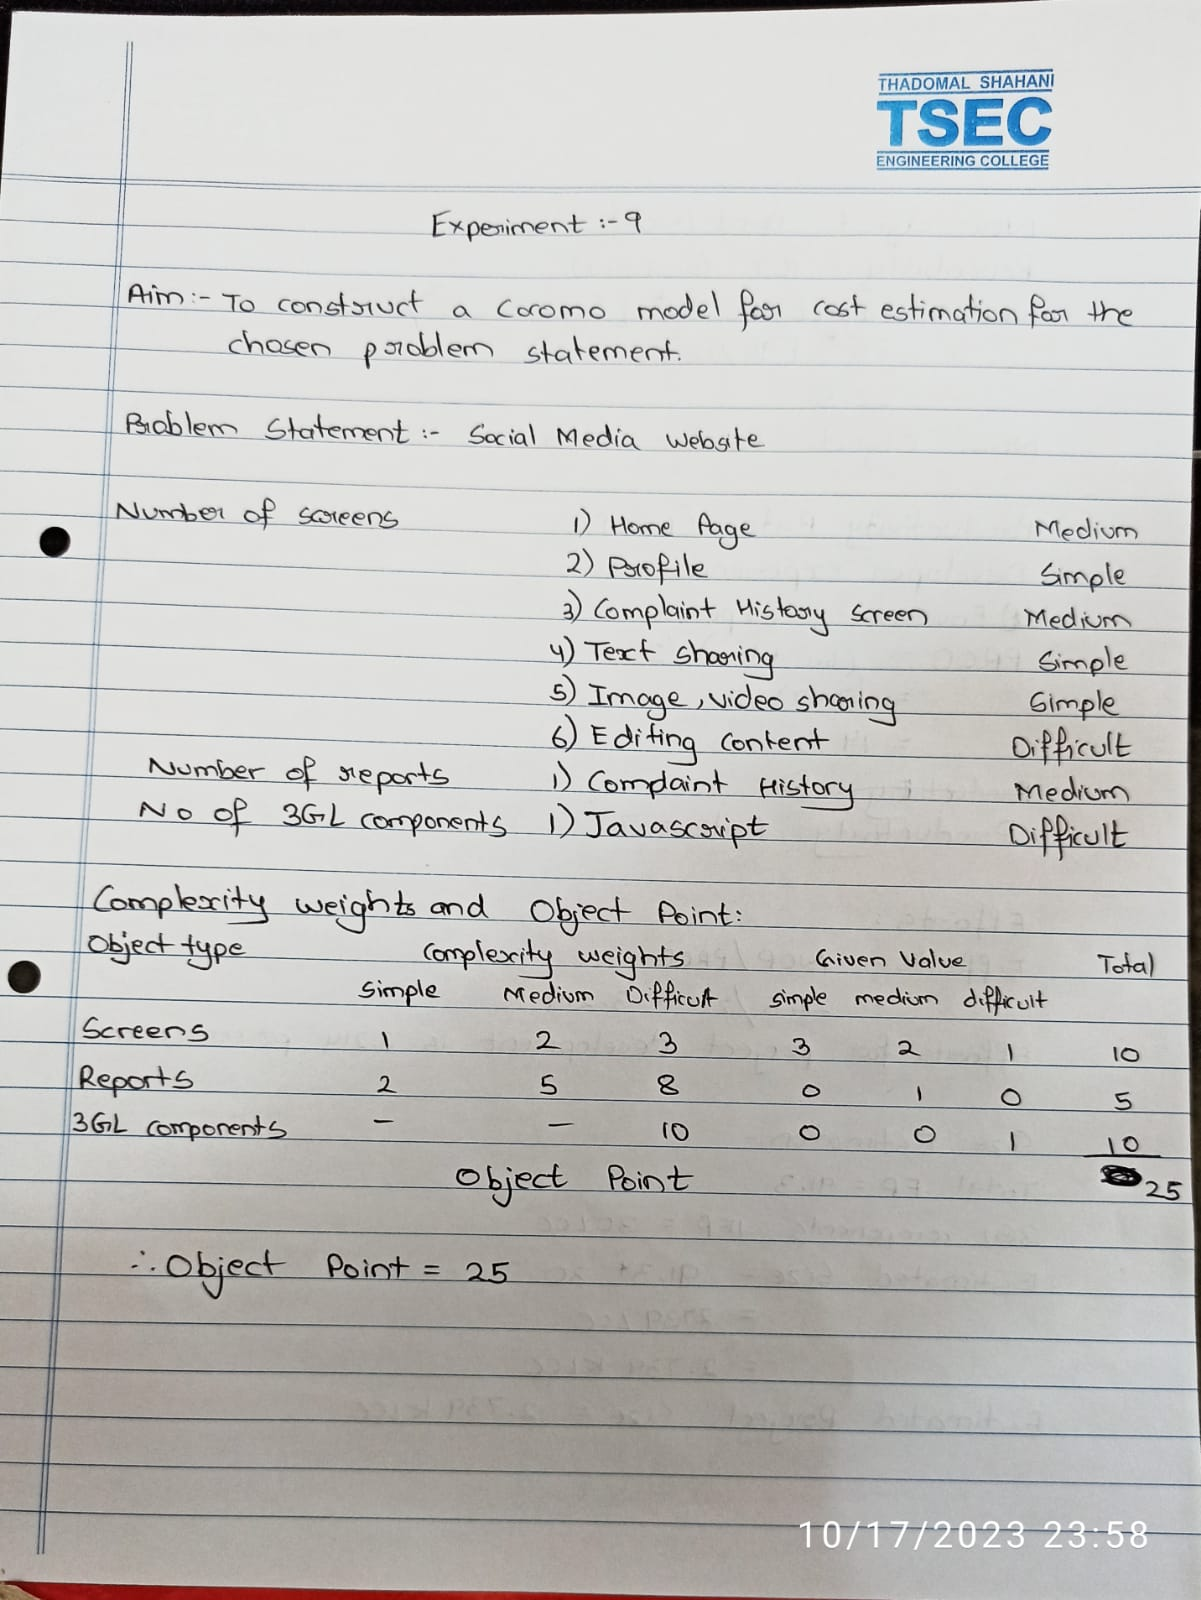 THADOMAL SHAHANI
TSEC
ENGINEERING COLLEGE
Experiment :- 9
Aim :- To construct a Coromo model for cost estimation for the
chosen problem statement.
Problem Statement :- Social Media Website
Number of screens 1) Home Page Medium
2) Profile Simple
3) Complaint History Screen Medium
4) Text sharing Simple
5) Image, video sharing Simple
6) Editing content Difficult
Number of reports 1) Complaint History Medium
No of 3GL components 1) Javascript Difficult
Complexity weights and Object Point:
Object type Complexity weights Given Value Total
Simple Medium Difficult simple medium difficult
Screens 1 2 3 3 2 1 10
Reports 2 5 8 0 1 0 5
3GL components - - 10 0 0 1 10
Object Point 25
∴ Object Point = 25
10/17/2023 23:58